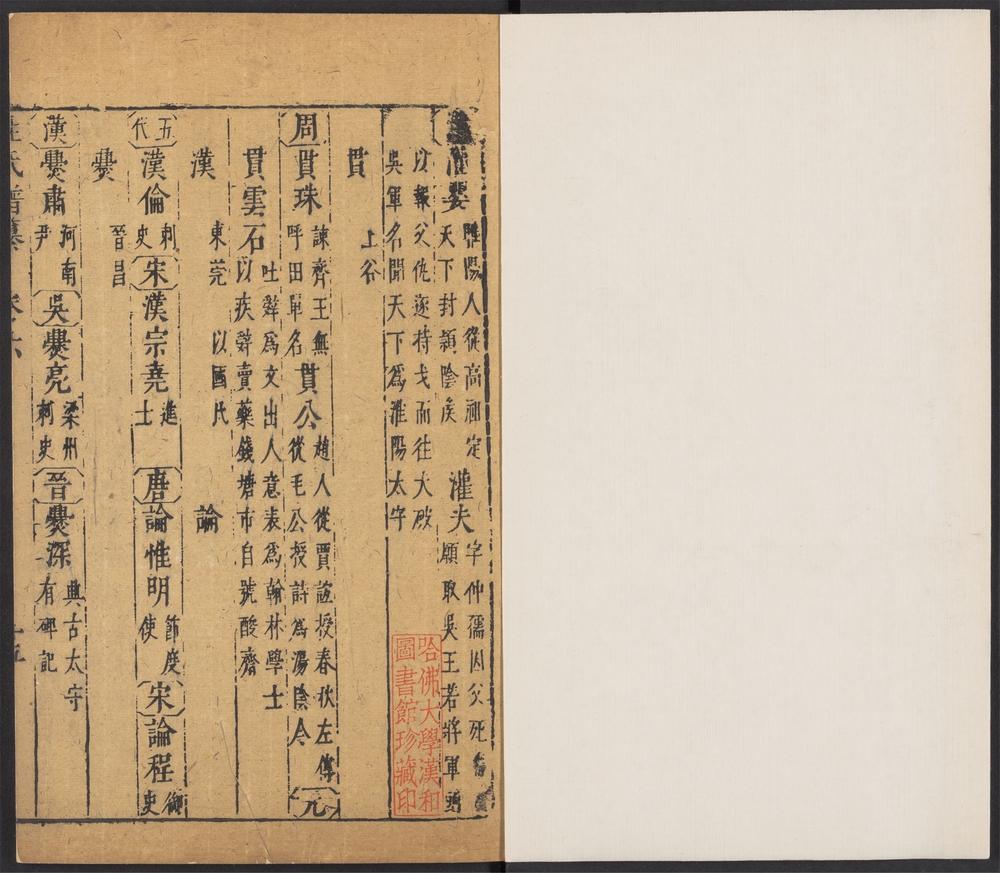 灌嬰 睢陽人從高祖定
天下封潁陰侯 灌夫 字仲孺因父死
願取吳王若將軍頭
以報父仇逐持戈而往大破
吳軍名聞天下為淮陽太守
貫
上谷
周 貫珠 諫齊王無
呼田單名 貫公 趙人從賈誼授春秋左傳
從毛公授詩為湯陰令 元
貫雲石 吐辭為文出人意表為翰林學士
以疾辭賣藥錢塘市自號酸齋
漢
東莞 以國氏 論
五代 漢倫 刺史 宋 漢宗堯 進士 唐 論惟明 節度使 宋 論程 御史
爨
晉昌
漢 爨肅 河南尹 吳 爨亮 梁州刺史 晉 爨深 興古太守
有碑記
姓氏譜纂 卷之六
哈佛大學漢和
圖書館珍藏印